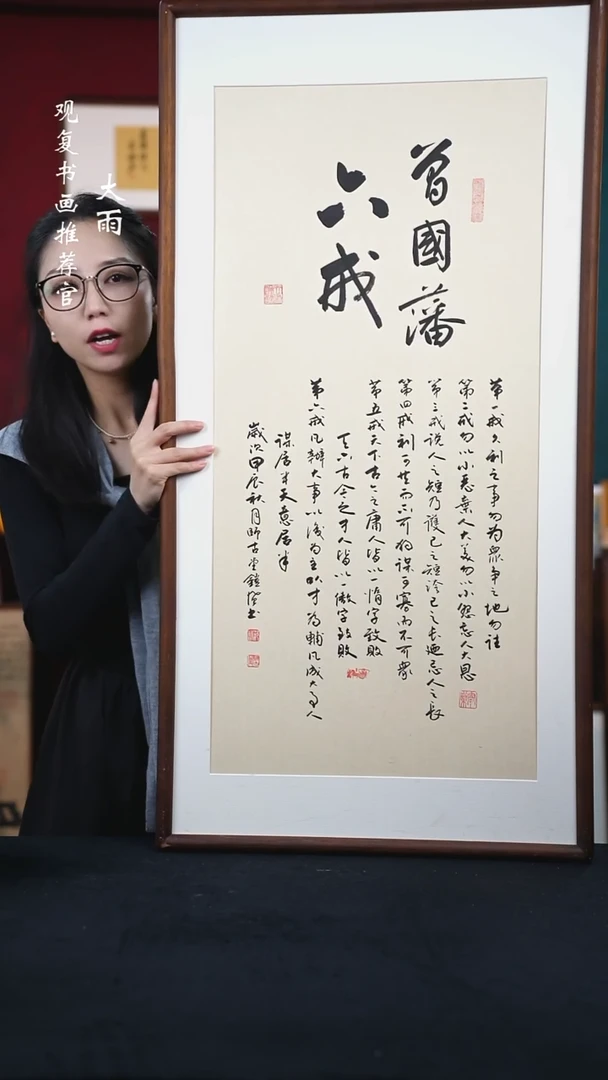 观复书画推荐官
大雨
曾國藩
六戒
第一戒久利之事勿为眾争之地勿往
第二戒勿以小恶棄人大美勿以小怨忘人大恩
第三戒说人之短乃護己之短誇己之长乃忌人之長
第四戒利可共而不可独谋可寡而不可眾
第五戒天下古今之庸人皆以一惰字致敗
天下古今之才人皆以一傲字致敗
第六戒凡辦大事以识为主以才为輔凡成大事人
谋居半天意居半
歲次甲辰秋月師古堂書